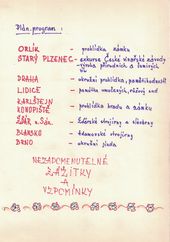 Plán. program :
ORLÍK - prohlídka zámku
STARÝ PLZENEC - exkurze České vinařské závody
- výroba přírodních a šumivých vín
DRAHA - okružní prohlídka, pamětihodnosti
LIDICE - památka umučených, růžový sad
KARLŠTEJN
KONOPIŠTĚ - prohlídka hradu a zámku
ŽĎÁR n. Sáz. - Žďárské strojírny a slévárny
BLANSKO - Adamovské strojírny
BRNO - okružní jízda
NEZAPOMENUTELNÉ
ZÁŽITKY
A
VZPOMÍNKY